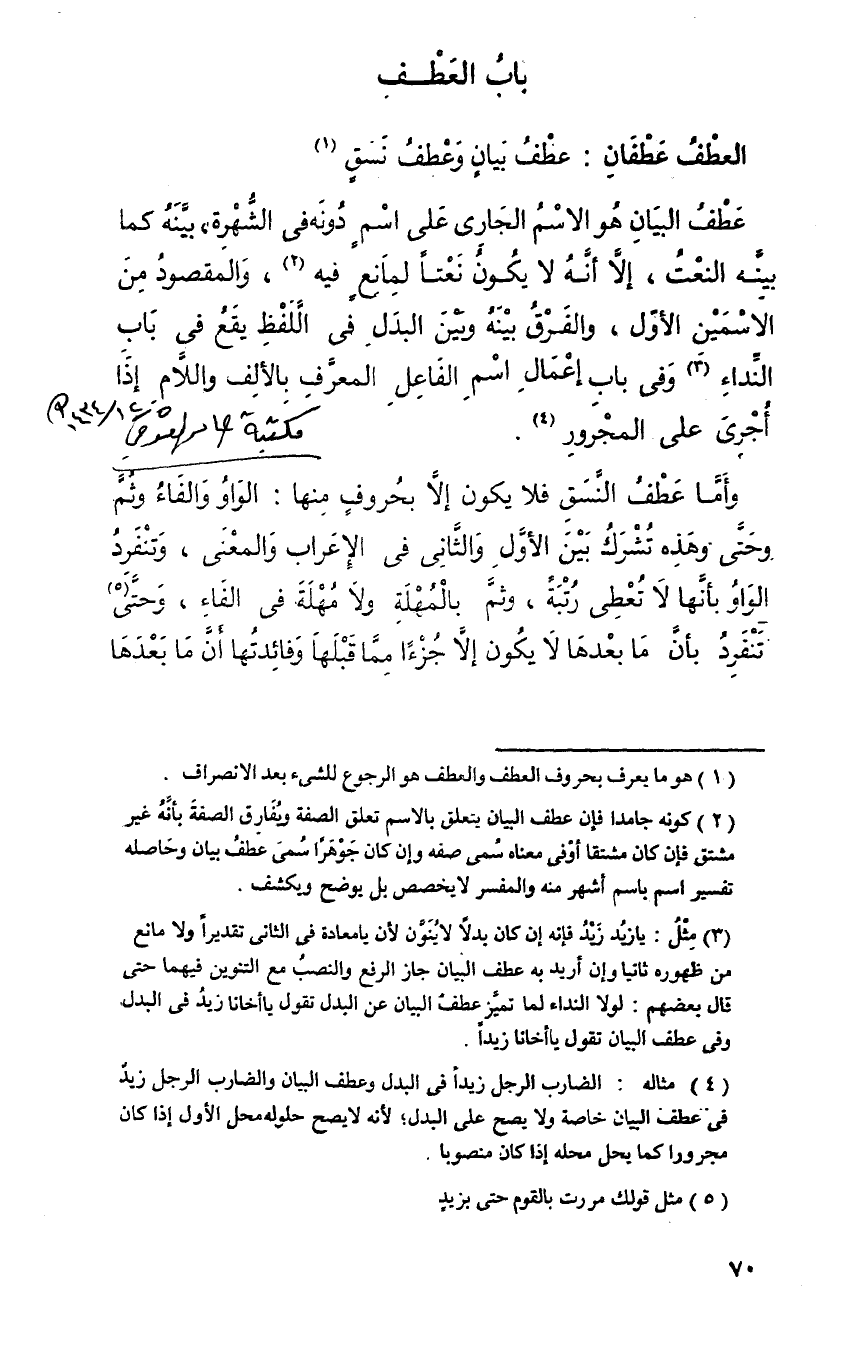 بابُ العَطْـــفِ
العطْفُ عَطْفَانِ : عطْفُ بَيانٍ وَعْطفُ نَسَقٍ (١)
عَطْفُ البيَانِ هُو الاسْمُ الجَارِى عَلى اسْمٍ دُونَه فى الشُّهْرةِ، بيَّنَهُ كما
بينَّـه النعْتُ ، إلَّا أنَّـهُ لا يكُـونُ نَعْتـاً لمانعٍ فيه (٢) ، وَالمقصودُ مِنَ
الاسْمَيْن الأوّل ، والفَـرْقُ بيْنَهُ وبَيْنَ البدَلِ فى الَّلفْظِ يقَعُ فى بَابِ
النِّداءِ (٣) وَفى بابِ إعْمَالِ اسْمِ الفَاعلِ المعرَّفِ بِالألِفِ واللَّامِ إذَا
أُجْرِىَ على المجْرورِ (٤) .
وأَمَّـا عَطْفُ النَّسَقِ فلا يكون إلَّا بحُروفٍ منها : الوَاوُ وَالفَاءُ وثُمَّ
وحَتَّى وهَذِه تُشْرَكُ بَيْنَ الأوَّلِ وَالثَّانِى فى الإعْرابِ وَالمعْنَى ، وَتنْفَردُ
الوَاوُ بأنَّها لَا تُعْطِى رُتْبَةً ، وثمَّ بالْمُهْلَةِ ولَا مُهْلَةَ فى الفَاءِ ، وَحتَّى(٥)
تَنْفَرِدُ بأنَّ مَا بعْدهَا لَا يكُون إلَّا جُزْءًا مِمَّا قبْلَهاَ وَفائِدتُها أَنَّ مَا بَعْدَهَا
( ١ ) هو ما يعرف بحروف العطف والعطف هو الرجوع للشىء بعد الانصراف .
( ٢ ) كونه جامدا فإن عطف البيان يتعلق بالاسم تعلق الصفة ويُفَارق الصفةَ بأنَّهُ غير
مشتق فإن كان مشتقا أوْفى معناه سُمى صفه وإن كان جَوْهَرًا سُمىَ عطفُ بيان وحَاصله
تفسير اسم باسم أشهر منه والمفسر لايخصص بل يوضح ويكشف .
(٣) مِثْلُ : يازيُد زَيْدُ فإنه إن كان بدلاً لايُنَوَّن لأن يامعادة فى الثانى تقديراً ولا مانع
من ظهوره ثانيا وإن أريد به عطف البيان جاز الرفع والنصبُ مع التنوين فيهما حتى
قال بعضهم : لولا النداء لما تميَّز عطفُ البيان عن البدل تقول ياأخانا زيدُ فى البدل
وفى عطف البيان تقول ياأخانا زيداً .
( ٤ ) مثاله : الضارب الرجل زيداً فى البدل وعطف البيان والضارب الرجل زيدٌ
فى عطف البيان خاصة ولا يصح على البدل؛ لأنه لايصح حلوله محل الأول إذا كان
مجرورا كما يحل محله إذا كان منصوبا .
( ٥ ) مثل قولك مررت بالقوم حتى بزيدٍ
٧٠